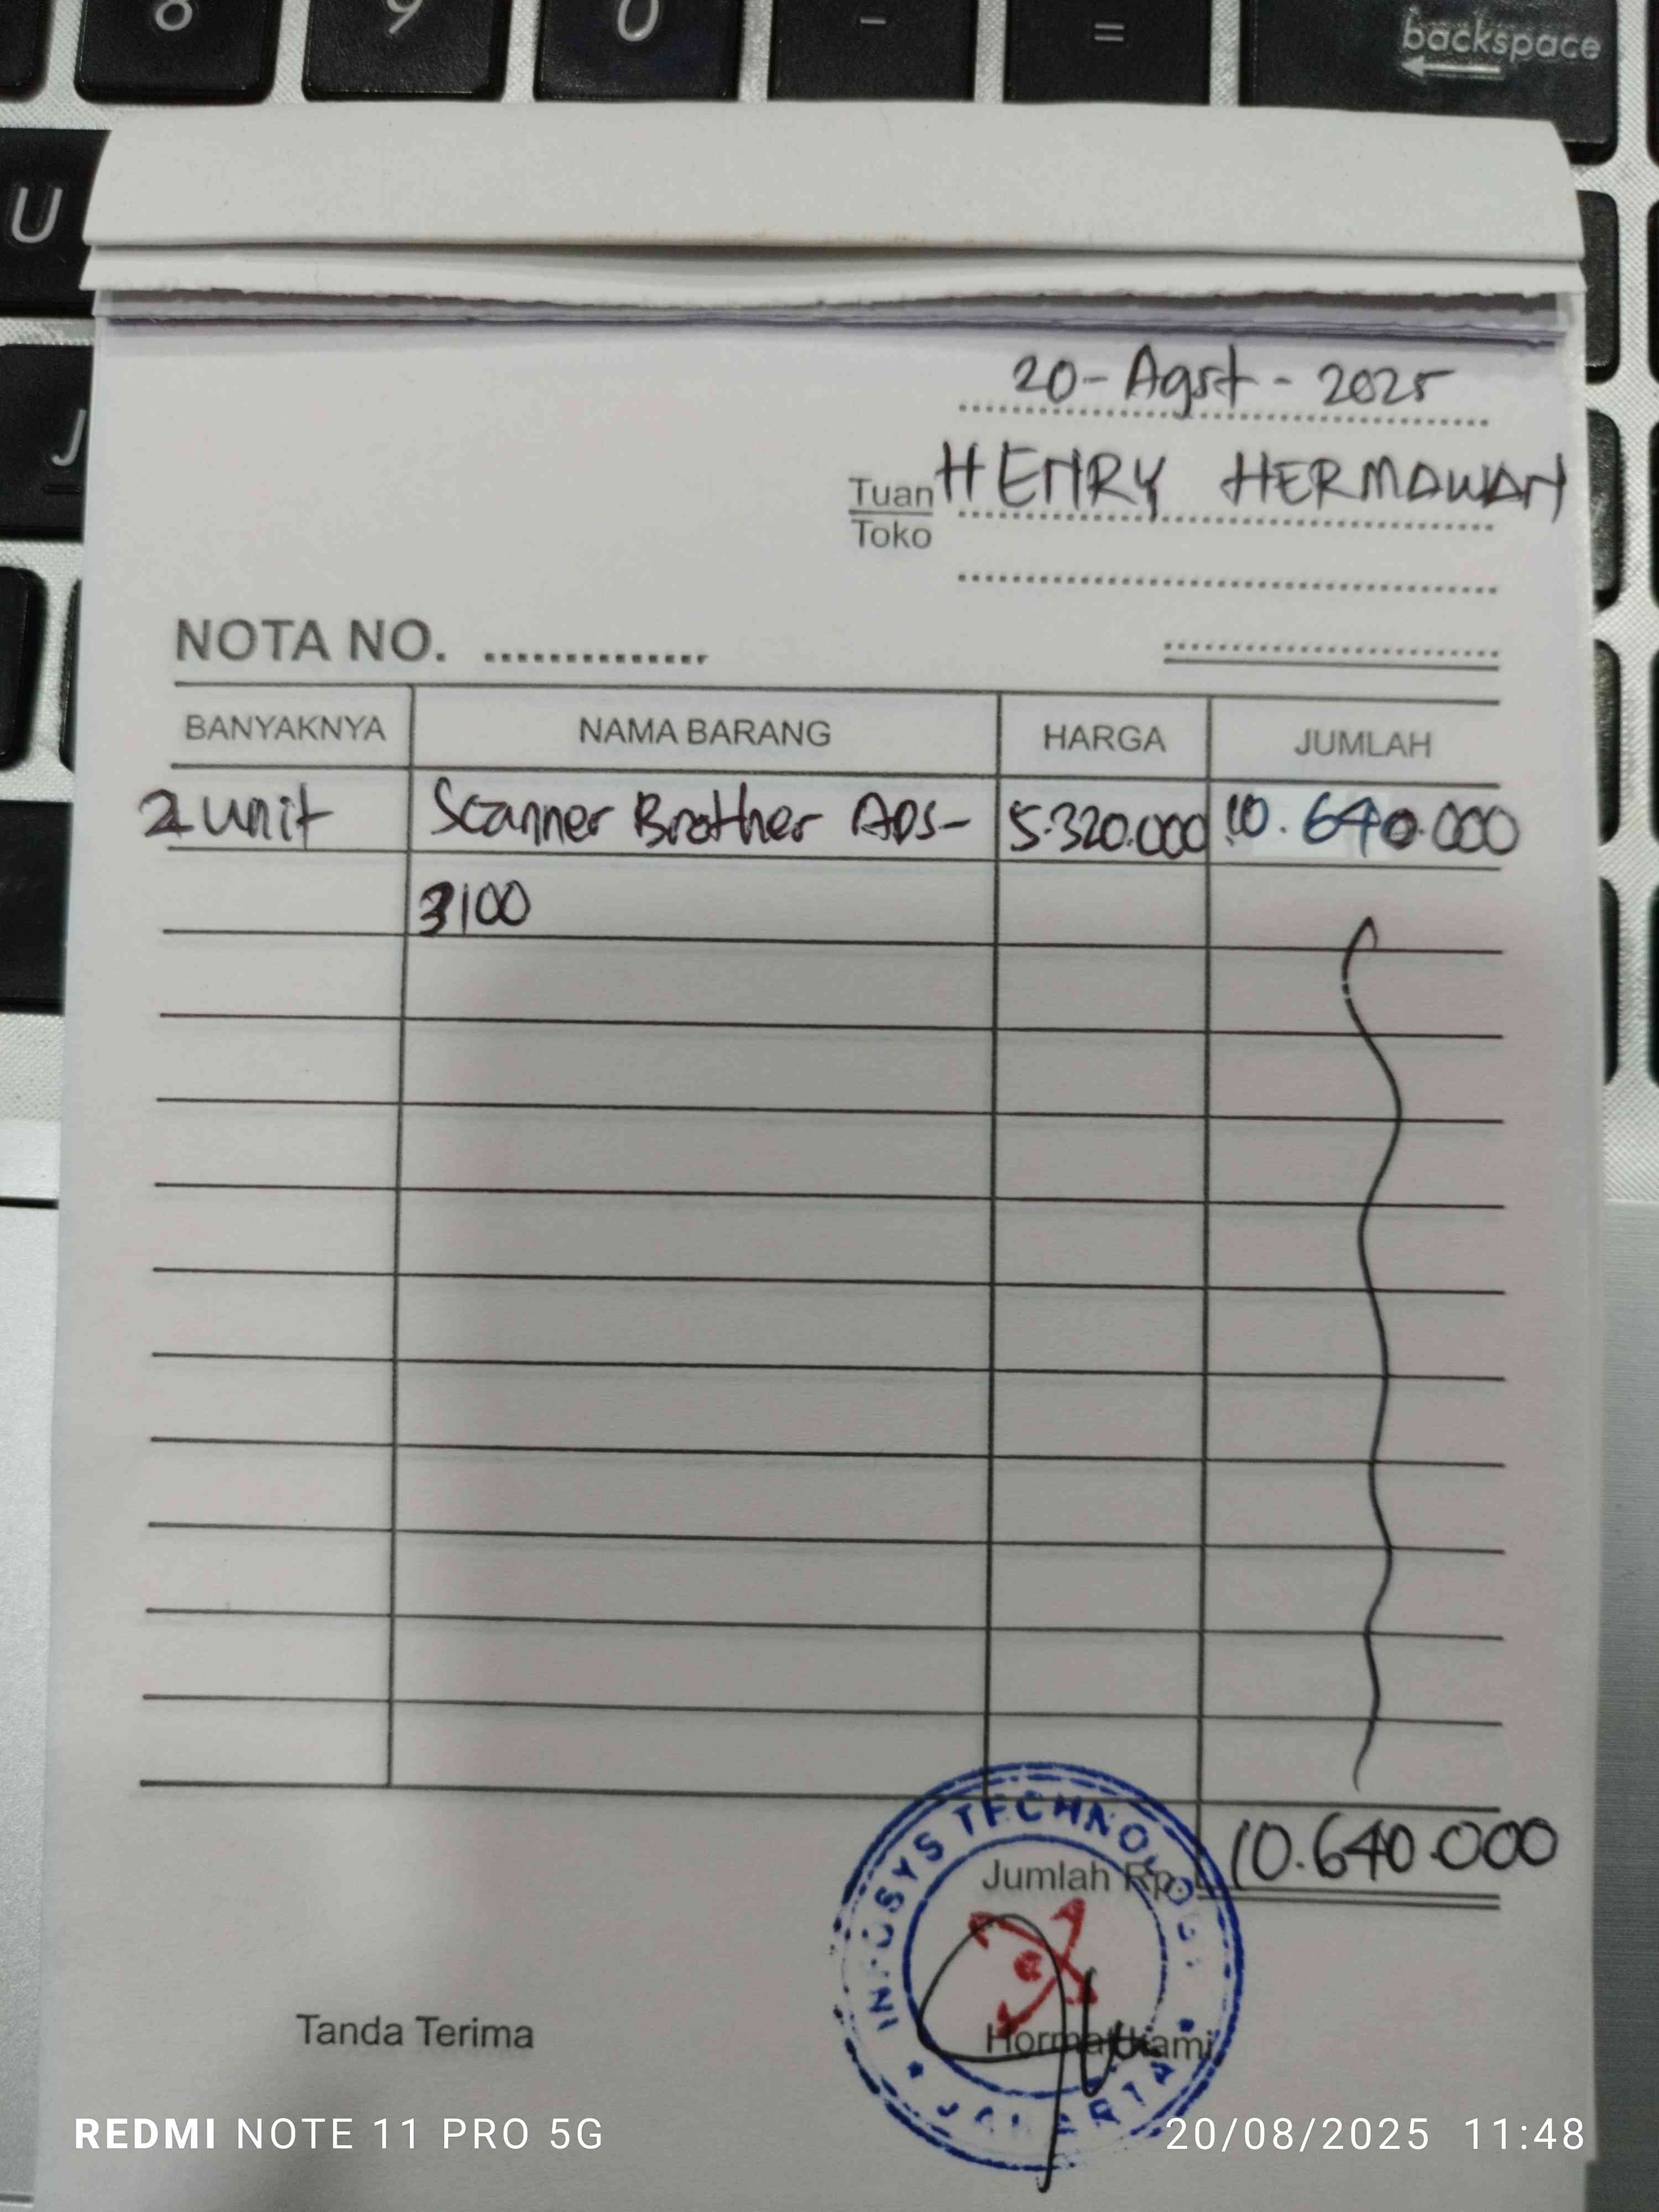 8 9 0 - =
backspace
U
J
20-Agst-2025
Tuan HENRY HERMAWAN
Toko
NOTA NO. ..............
BANYAKNYA NAMA BARANG HARGA JUMLAH
2 unit Scanner Brother ADS- 5.320.000 10.640.000
3100
Jumlah Rp. 10.640.000
INFOSYS TECHNOLOGY
JAKARTA
Tanda Terima Hormat kami
REDMI NOTE 11 PRO 5G 20/08/2025 11:48